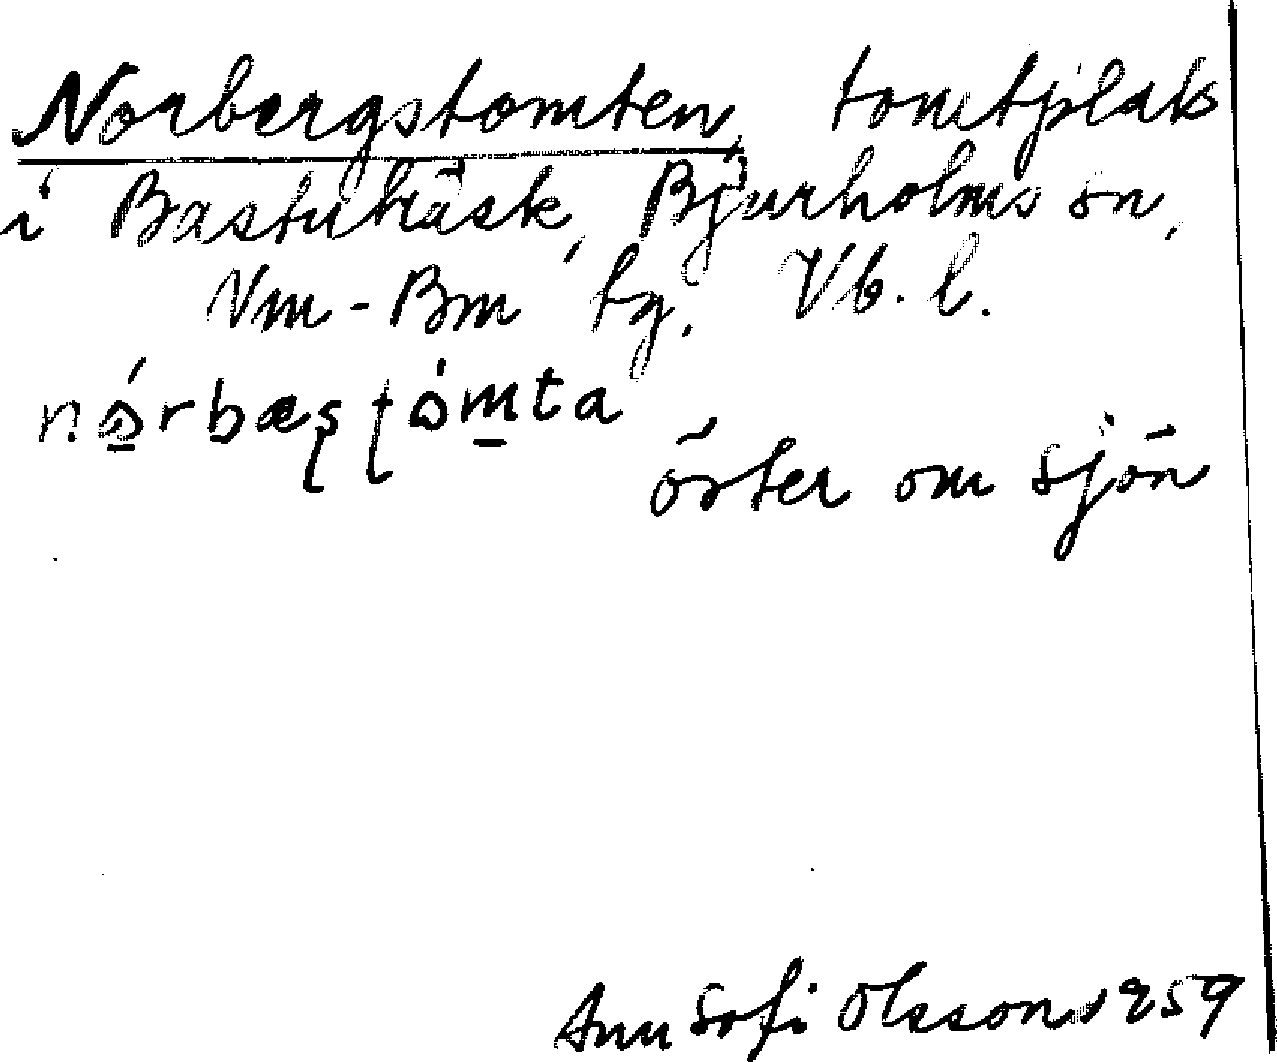 Norbergstomten, tomtplats
i Bastuträsk, Bjurholms sn,
Nm-Bm tg. Vb. l.
öster om sjön
Ann Sofi Olsson 1959